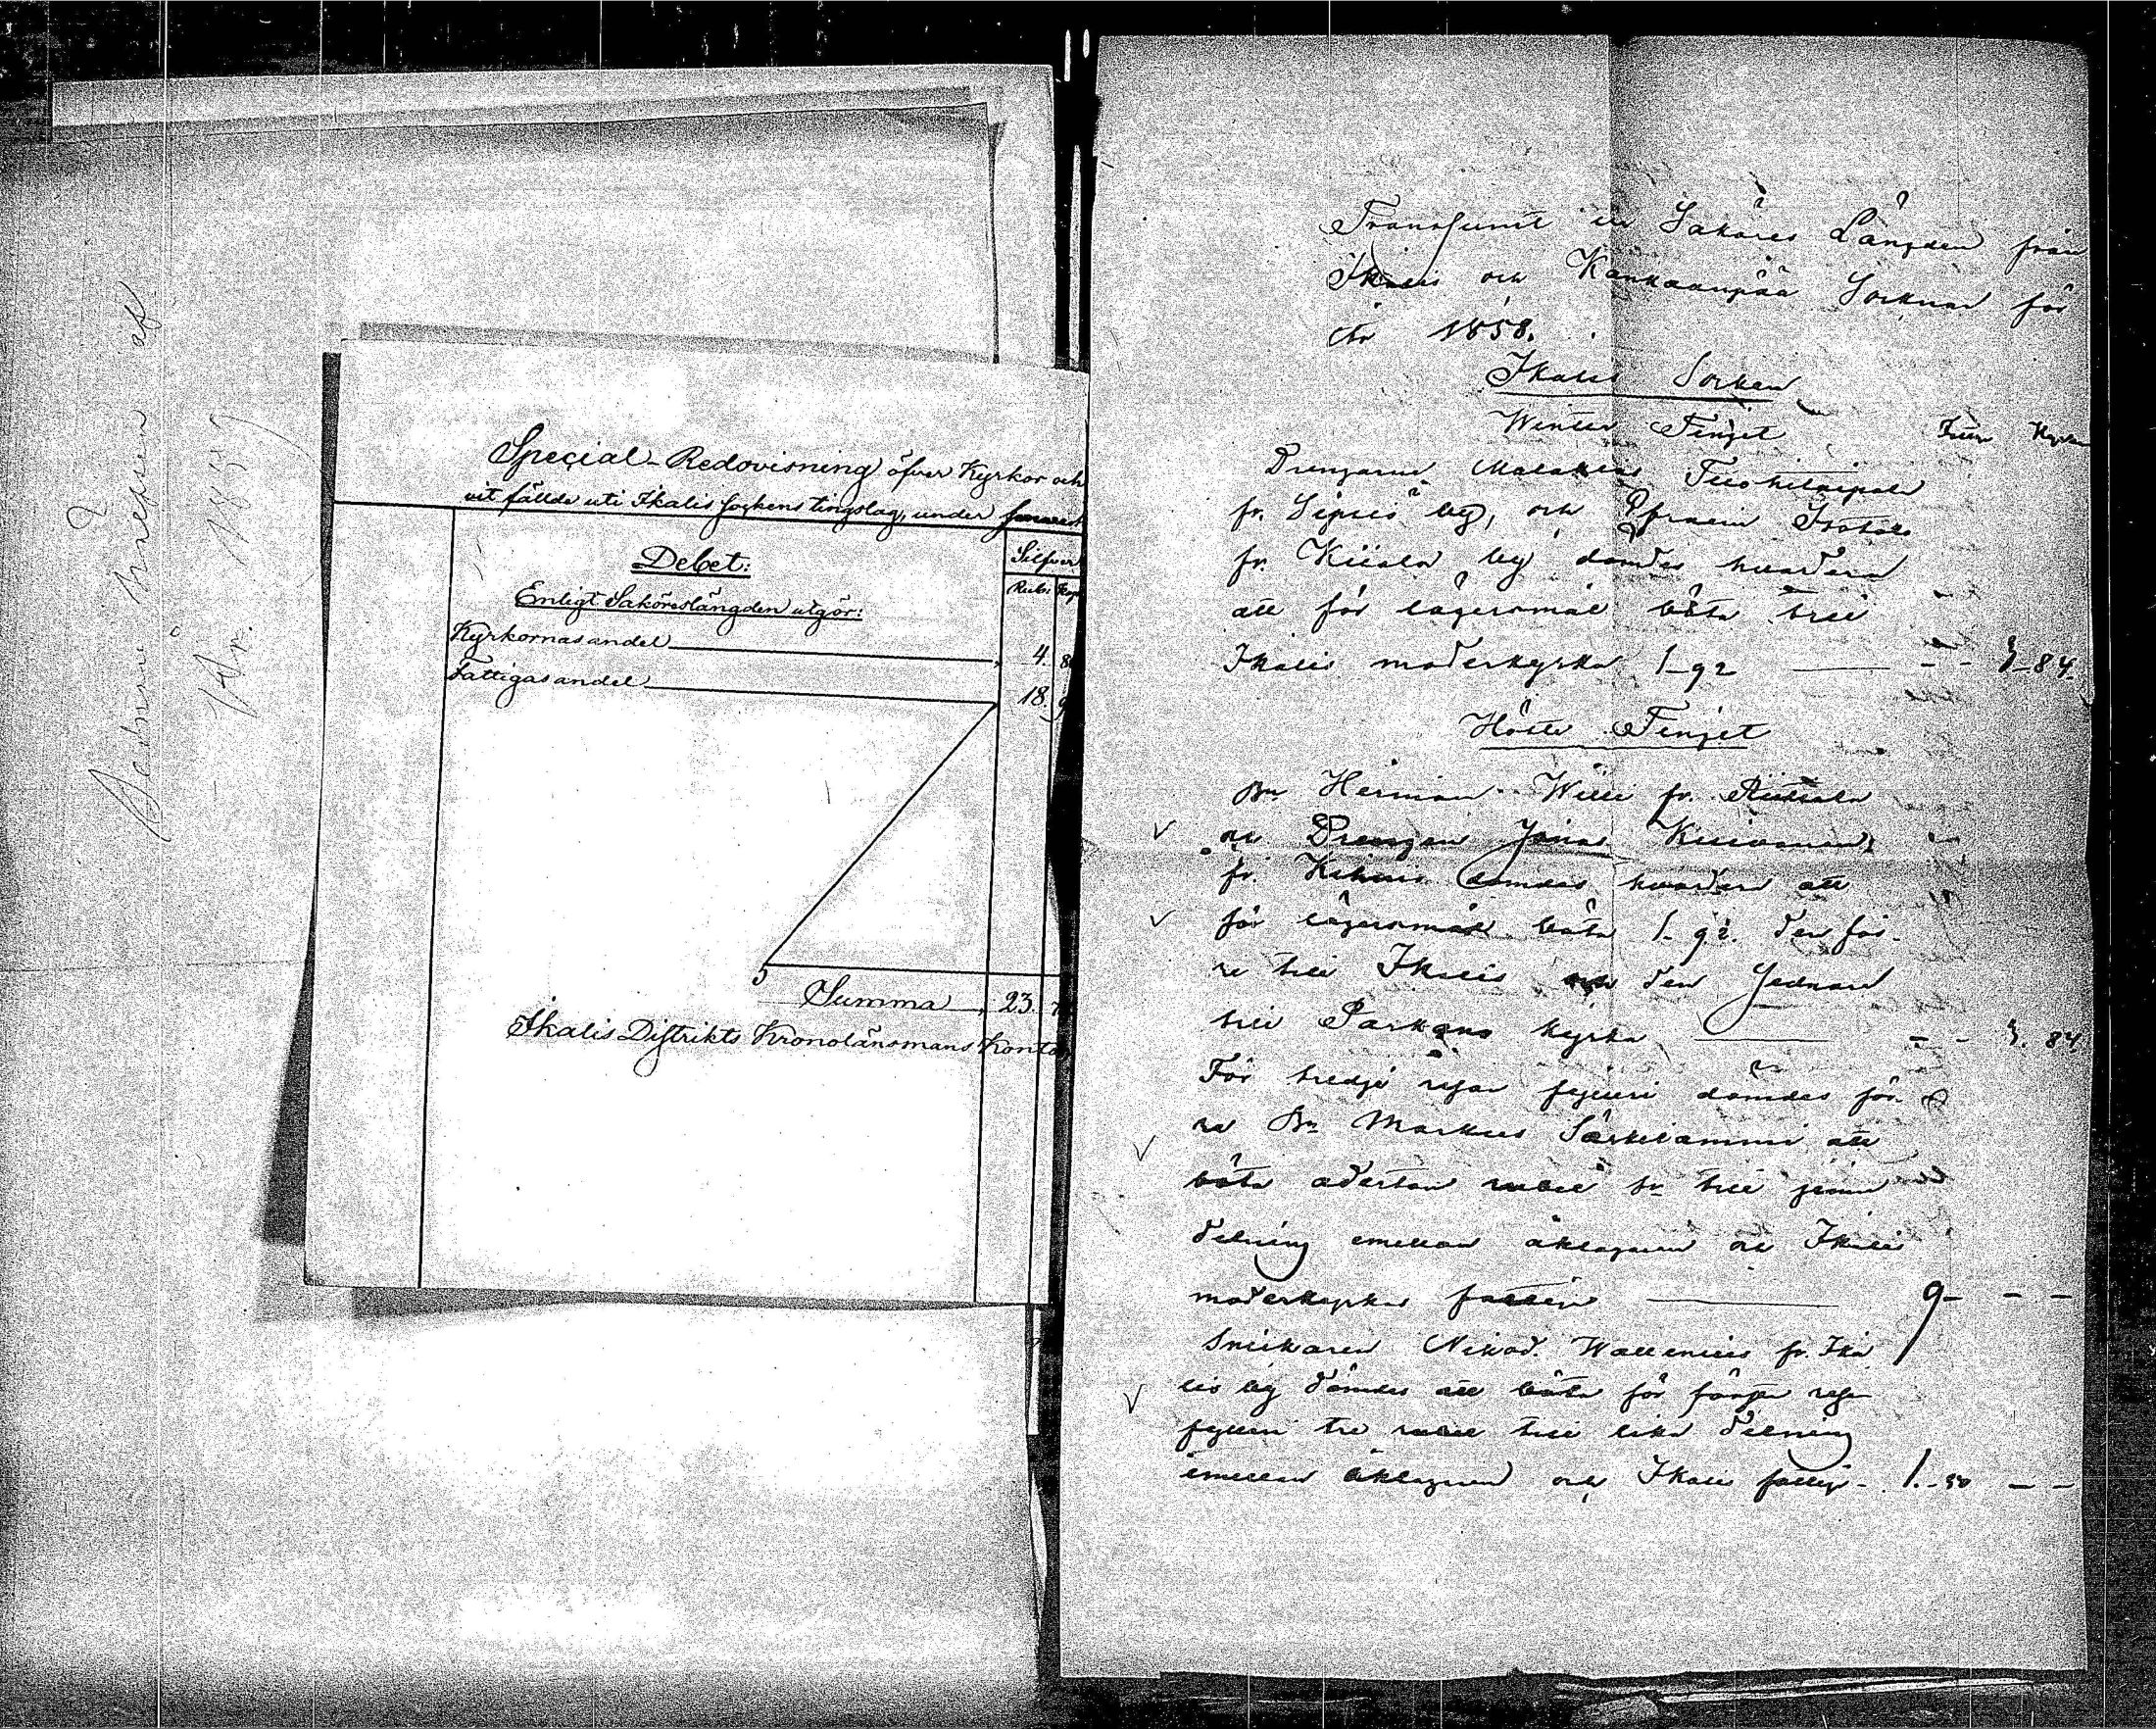 Special-Redovisning öfver Kyrkor och
vit fällde uti Ikalis Sockens tingslag, under
Debet:
Silfver
Rub: Kop
Enligt Saköreslängden utgör:
Kyrkornas andel 4. 8
Fattigas andel 18. 9
Summa 23. 7
Ikalis Distrikts Kronolänsmans Kontor
år 185
Transsumt ur Saköres Längden från
Ikalis och Kankaanpää Socknar för
år 1858.
Ikalis Socken
Winter Tinget
Drengarne Malakias
fr. Sipsiö by, och Efraim
fr. by dömdes hvardera
att för lägersmål böta till
Ikalis moderkyrka 1-92 - - 3-84.
Höste Tinget
Bn Herman Willi fr.
och Drengen Jonas
fr. dömdes hvardera att
för lägersmål böta 1-92. den för-
re till Ikalis och den sednare
till Parkano kyrka - - 3. 84.
För tredje resan fylleri dömdes för-
re Bn Markus Särkilammi att
böta aderton rubel sr till jemn
delning emellan åklagaren och Ikalis
moderkyrkas fattige 9- - -
Snickaren Nikod. Wallenius fr. Ika
lis by dömdes att böta för första resan
fylleri tre rubel till lika delning
emellan åklagaren och Ikalis fattige - 1.-50 - -